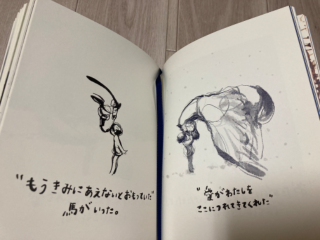 "もうきみにあえないとおもっていた"
馬がいった。
"愛がわたしを
ここにつれてきてくれた"